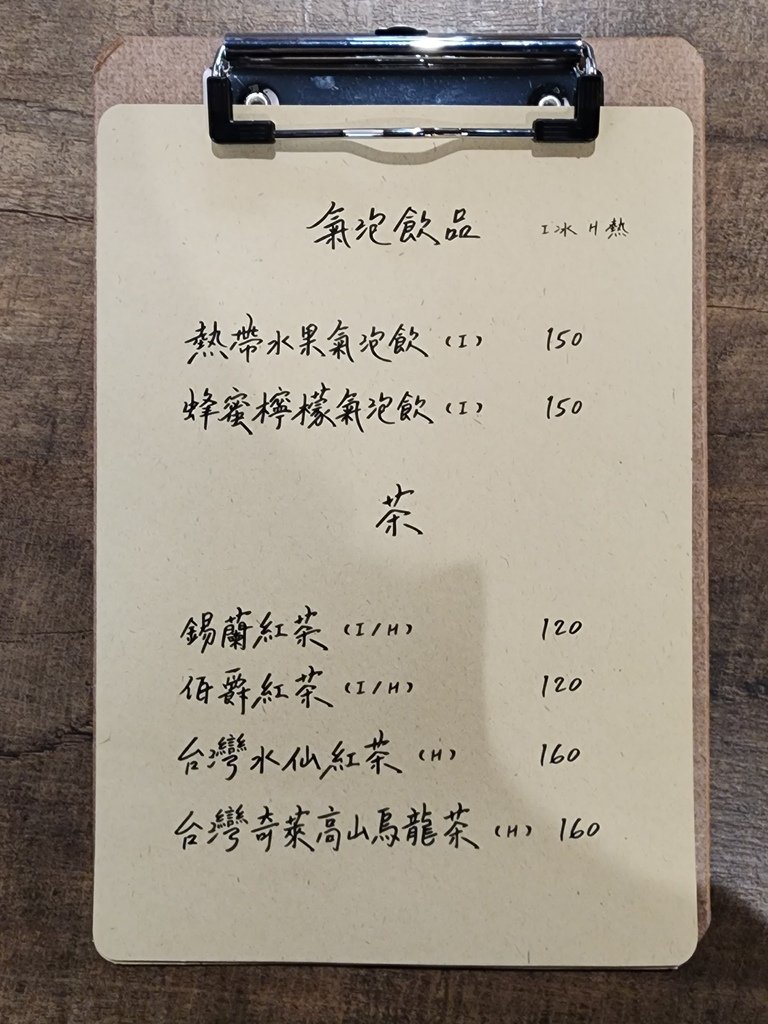 氣泡飲品 I冰 H熱
熱帶水果氣泡飲 (I) 150
蜂蜜檸檬氣泡飲 (I) 150
茶
錫蘭紅茶 (I/H) 120
伯爵紅茶 (I/H) 120
台灣水仙紅茶 (H) 160
台灣奇萊高山烏龍茶 (H) 160